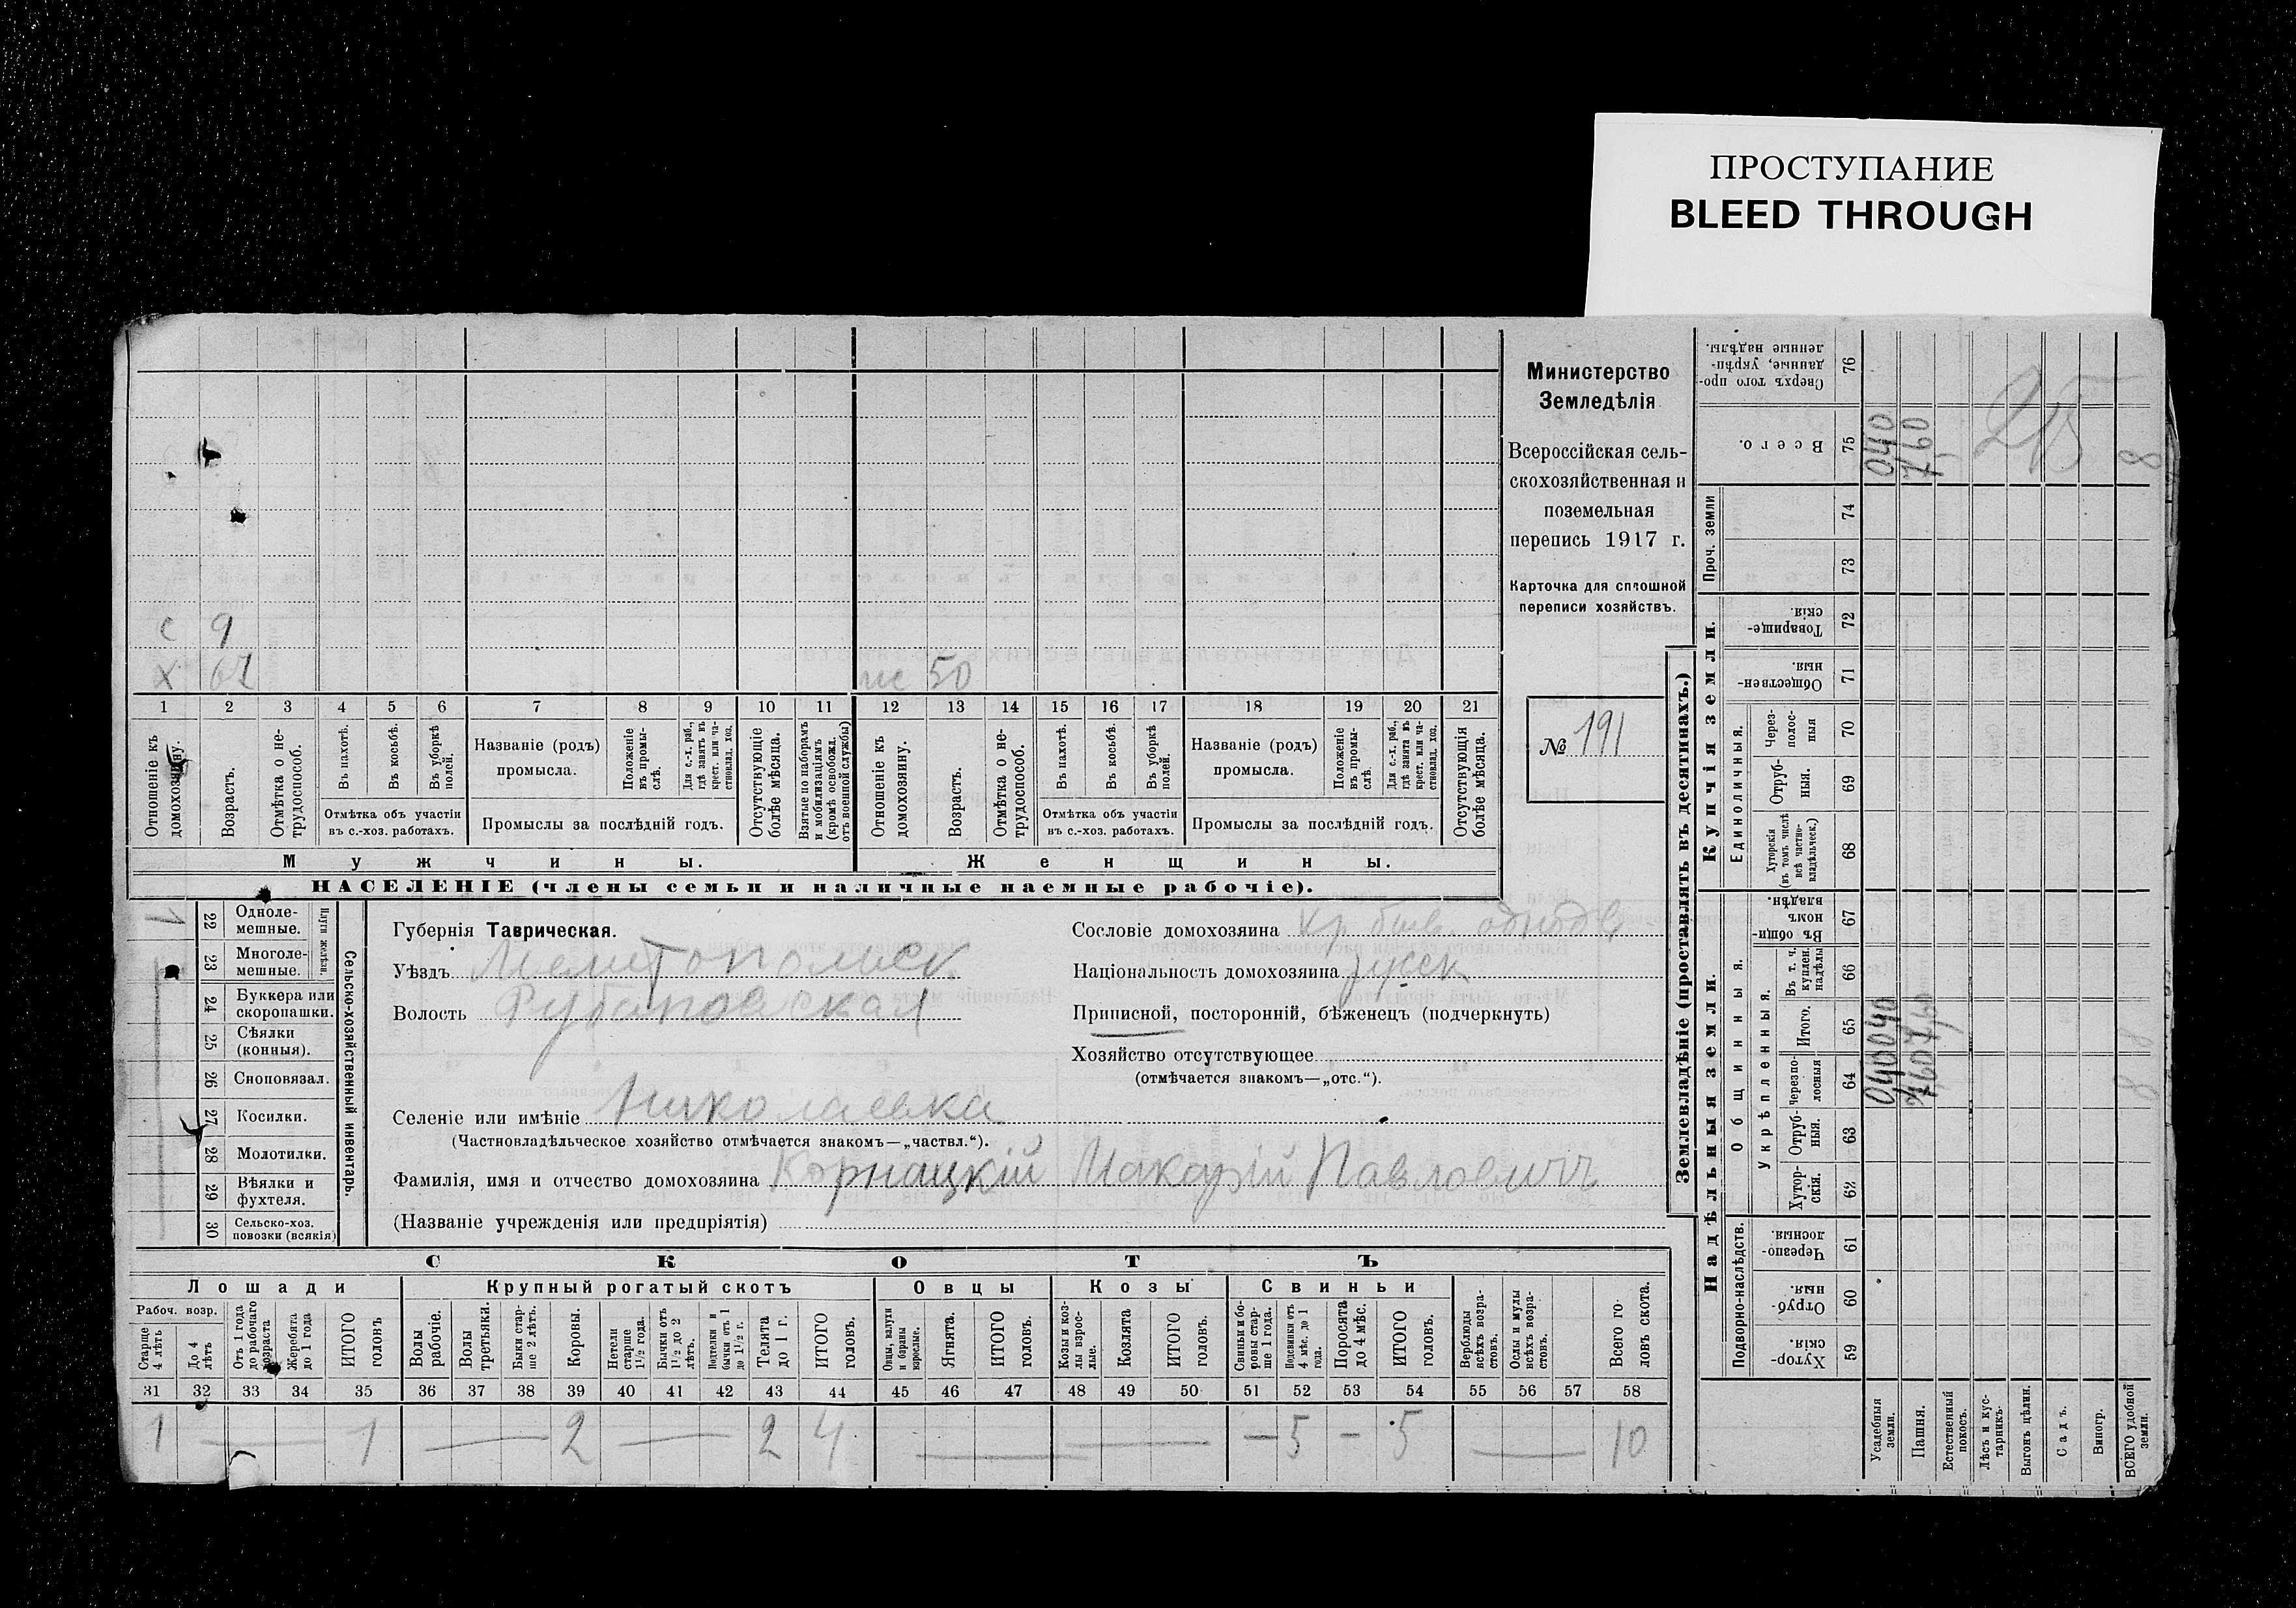 ПРОСТУПАНИЕ
BLEED THROUGH
Министерство
Земледѣлія
Всероссійская сель-
скохозяйственная и
поземельная
перепись 1917 г.
Карточка для сплошной
переписи хозяйствъ.
№ 191
с 9
х 67
ж 50
1 2 3 4 5 6 7 8 9 10 11 12 13 14 15 16 17 18 19 20 21
Отношеніе къ домохозяину.
Возрастъ.
Отмѣтка о не-
трудоспособ.
Въ пахотѣ.
Въ косьбѣ.
Въ уборкѣ полей.
Отмѣтка объ участіи
въ с.-хоз. работахъ.
Названіе (родъ)
промысла.
Положеніе въ промы-
слѣ.
Для с.-х. раб., гдѣ занятъ въ крест. или ча-
стновлад. хоз.
Промыслы за послѣдній годъ.
Отсутствующіе болѣе мѣсяца.
Взятые по наборамъ и мобилизаціямъ (кромѣ освобожд. отъ военной службы)
Отношеніе къ домохозяину.
Возрастъ.
Отмѣтка о не-
трудоспособ.
Въ пахотѣ.
Въ косьбѣ.
Въ уборкѣ полей.
Отмѣтка объ участіи
въ с.-хоз. работахъ.
Названіе (родъ)
промысла.
Положеніе въ промы-
слѣ.
Для с.-х. раб., гдѣ занята въ крест. или ча-
стновлад. хоз.
Промыслы за послѣдній годъ.
Отсутствующія болѣе мѣсяца.
Мужчины.
Женщины.
НАСЕЛЕНІЕ (члены семьи и наличные наемные рабочіе).
22 Одноле-
мешные.
23 Многоле-
мешные.
Плуги желѣзн.
24 Буккера или
скоропашки.
25 Сѣялки
(конныя).
26 Сноповязал.
27 Косилки.
28 Молотилки.
29 Вѣялки и
фухтеля.
30 Сельско-хоз.
повозки (всякія)
Сельско-хозяйственный инвентарь.
1
Губернія Таврическая.
Уѣздъ Мелитопольск
Волость Рубановская
Селеніе или имѣніе Николаевка
(Частновладѣльческое хозяйство отмѣчается знакомъ—„частвл.“).
Фамилія, имя и отчество домохозяина Корнацкій Макарій Павловичъ
(Названіе учрежденія или предпріятія)
Сословіе домохозяина кр. быв.
Національность домохозяина русск
Приписной, посторонній, бѣженецъ (подчеркнуть)
Хозяйство отсутствующее
(отмѣчается знакомъ—„отс.“).
СКОТЪ
Лошади
Крупный рогатый скотъ
Овцы
Козы
Свиньи
Рабоч. возр.
Старше 4 лѣтъ
До 4 лѣтъ
Отъ 1 года до рабочаго возраста
Жеребята до 1 года
ИТОГО головъ
Волы рабочіе.
Волы третьяки.
Быки стар-
ше 2 лѣтъ.
Коровы.
Нетели старше 1½ года.
Бычки отъ 1½ до 2 лѣтъ.
Подтелки и бычки отъ 1 до 1½ г.
Телята до 1 г.
ИТОГО головъ.
Овцы, валухи и бараны взрослые.
Ягнята.
ИТОГО головъ.
Козы и коз-
лы взрос-
лые.
Козлята
ИТОГО головъ.
Свиньи и бо-
ровы стар-
ше 1 года.
Подсвинки отъ 4 мѣс. до 1 года.
Поросята до 4 мѣс.
ИТОГО головъ.
Верблюды всѣхъ возра-
стовъ.
Ослы и мулы всѣхъ возра-
стовъ.
Всего го-
ловъ скота.
31 32 33 34 35 36 37 38 39 40 41 42 43 44 45 46 47 48 49 50 51 52 53 54 55 56 57 58
1 — 1 — 2 — 2 4 — — — 5 — 5 — 10
Землевладѣніе (проставлять въ десятинахъ.)
Надѣльныя земли.
Купчія земли.
Проч. земли
Подворно-наслѣдств.
Общинныя.
Укрѣпленныя.
Единоличныя.
Сверхъ того про-
данные, укрѣп-
ленные надѣлы.
76
Всего.
75
74
73
Товарище-
скія.
72
Обществен-
ныя.
71
Через-
полос-
ныя
70
Отруб-
ныя.
69
Хуторскія
(въ томъ числѣ всѣ частно-
владѣльческ.)
68
Въ общин-
номъ владѣн.
67
Въ т. ч. куплен. надѣлы
66
Итого.
65
Черезпо-
лосныя
64
Отруб-
ныя.
63
Хутор-
скія.
62
Черезпо-
лосныя.
61
Отруб-
ныя.
60
Хутор-
скія.
59
Усадебныя земли.
Пашня.
Естественный покосъ.
Лѣсъ и кус-
тарникъ.
Выгонъ цѣлин.
Садъ.
Виногр.
ВСЕГО удобной земли.
040
7,60
8
040 040
7,60 7,60
8 8